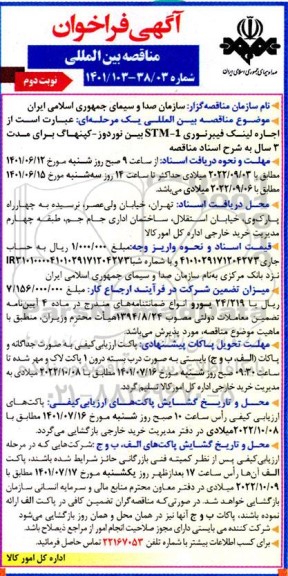 آگهی فراخوان
مناقصه بین المللی
شماره ۱۴۰۱/۱۰۳-۳۸/۰۳
نوبت دوم
صدا و سیمای جمهوری اسلامی ایران
نام سازمان مناقصه‌گزار: سازمان صدا و سیمای جمهوری اسلامی ایران
موضوع مناقصه بین المللی یک مرحله‌ای: عبارت است از
اجاره لینک فیبرنوری STM-1 بین نوردوز-کپنهاگ برای مدت
۳ سال به شرح اسناد مناقصه
مهلت و نحوه دریافت اسناد: از ساعت ۹ صبح روز شنبه مورخ ۱۴۰۱/۰۶/۱۲
مطابق با ۲۰۲۲/۰۹/۰۳ میلادی حداکثر تا ساعت ۱۴ روز سه‌شنبه مورخ ۱۴۰۱/۰۶/۱۵
مطابق با ۲۰۲۲/۰۹/۰۶ میلادی می‌باشد.
محل دریافت اسناد: تهران، خیابان ولی‌عصر، نرسیده به چهارراه
پارک‌وی، خیابان استقلال، ساختمان اداری جام جم، طبقه چهارم
مدیریت خرید خارجی اداره کل امور کالا
قیمت اسناد و نحوه واریز وجه: مبلغ ۱/۰۰۰/۰۰۰ ریال به حساب
جاری ۴۱۰۱۰۲۹۱۷۱۲۰۴۲۷۳ و با شماره شبا IR۳۱۰۱۰۰۰۰۴۱۰۱۰۲۹۱۷۱۲۰۴۲۷۳
نزد بانک مرکزی به‌نام سازمان صدا و سیمای جمهوری اسلامی ایران
میزان تضمین شرکت در فرآیند ارجاع کار: مبلغ ۷/۱۵۶/۰۰۰/۰۰۰
ریال یا ۲۴/۲۱۹ یورو انواع ضمانتنامه‌های مندرج در ماده ۴ آیین‌نامه
تضمین معاملات دولتی مصوب ۱۳۹۴/۸/۲۴ هیأت محترم وزیران، منطبق با
ماهیت موضوع مناقصه، مورد پذیرش می‌باشد.
مهلت تحویل پاکات پیشنهادی: پاکت ارزیابی‌کیفی به صورت جداگانه و
پاکات (الف، ب و ج) بایستی به صورت درب بسته درون ۱ پاکت لاک و مهر شده تا
ساعت ۹:۳۰ صبح روز شنبه مورخ ۱۴۰۱/۰۷/۱۶ مطابق با ۲۰۲۲/۱۰/۰۸ میلادی به
مدیریت خرید خارجی اداره کل امور کالا تسلیم گردد.
محل و تاریخ گشایش پاکت‌های ارزیابی‌کیفی: پاکت‌های
ارزیابی کیفی رأس ساعت ۱۰ صبح روز شنبه مورخ ۱۴۰۱/۰۷/۱۶ مطابق با
۲۰۲۲/۱۰/۰۸ میلادی در دفتر مدیریت خرید خارجی بازگشایی می‌گردد.
محل و تاریخ گشایش پاکت‌های الف، ب و ج: شرکت‌هایی که در مرحله
ارزیابی‌کیفی پس از نظر کمیته فنی بازرگانی حائز شرایط شده باشند، پاکت
الف آن‌ها رأس ساعت ۱۷ بعدازظهر روز یکشنبه مورخ ۱۴۰۱/۰۷/۱۷ مطابق با
۲۰۲۲/۱۰/۰۹ میلادی در دفتر معاون محترم منابع مالی و سرمایه انسانی سازمان
بازگشایی خواهد شد. در صورتی که مناقصه‌گران تضمین کافی در پاکت الف ارائه
نموده باشند، پاکات ب و ج آنها نیز در همان محل و همان روز بازگشایی می‌شود
شرکت کننده می بایستی دارای مجوز صلاحیت انجام امور از مراجع ذیصلاح باشد.
برای کسب اطلاعات بیشتر با شماره تلفن ۲۲۱۶۷۰۵۳ تماس حاصل فرمائید.
اداره کل امور کالا